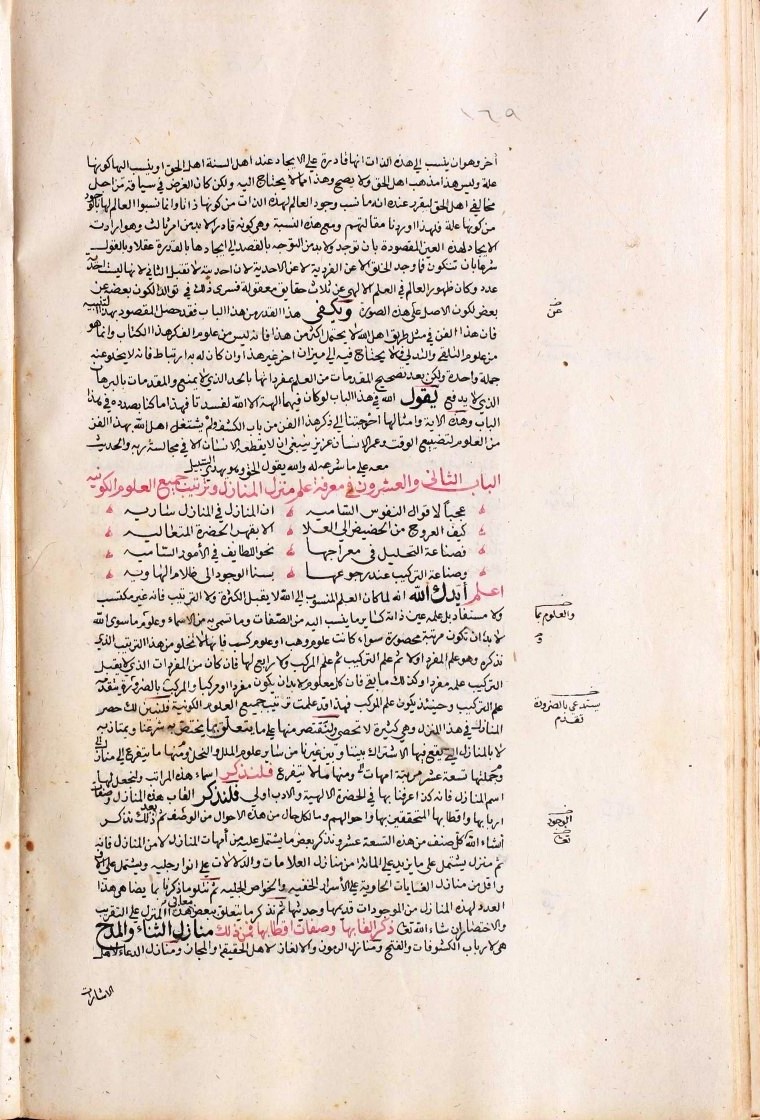 ١٦٩
اخر وهو ان ينسب الى هذه الذات انها قادرة على الايجاد عند اهل السنة اهل الحق او ينسب اليها كونها
علة وليس هذا مذهب اهل الحق ولا يصح وهذا مما لا يحتاج اليه ولكن كان الغرض في سياقه من اجل
مخالفى اهل الحق لنقرر عنده انه ما نسب وجود العالم لهذه الذات من كونها ذاتا وانما نسبوا العالم لها بالوجود
من كونها علة فلهذا اوردنا مقالتهم ومع هذه النسبة وهى كونه قادرا لا بد من امر ثالث وهو ارادت
الايجاد لهذه العين المقصودة بان توجد ولا بد من التوجه بالقصد الى ايجادها بالقدرة عقلا وبالقول
شرعا بان تتكون فما وجد الخلق الا عن الفردية لا عن الاحدية لان احديته لا تقبل الثانى لانها ليست احدية
عدد وكان ظهور العالم في العلم الالهى عن ثلاث حقايق معقولة فسرى ذلك في توالد الكون بعضه عن
بعض لكون الاصل على هذه الصورة ويكفى هذا القدر من هذا الباب فقد حصل المقصود بهذا التنبيه
فان هذا الفن في مثل طريق اهل الله لا يحتمل اكثر من هذا فانه ليس من علوم الفكر هذا الكتاب وانما هو
من علوم التلقى والتدلى فلا يحتاج فيه الى ميزان اخر غير هذا وان كان له به ارتباط فانه لا يخلو عنه
جملة واحدة ولكن بعد تصحيح المقدمات من العلم بمفرداتها بالحد الذى لا يمنع والمقدمات بالبرهان
الذى لا يدفع يقول الله في هذا الباب لو كان فيهما الهة الا الله لفسدتا فهذا مما كنا بصدده في هذا
الباب وهذه الاية وامثالها احوجتنا الى ذكر هذا الفن من باب الكشف ولم يشتغل اهل الله بهذا الفن
من العلوم لتضييع الوقت وعمر الانسان عزيز ينبغى ان لا يقطعه الانسان الا في مجالسة ربه والحديث
معه على ما شرعه له والله يقول الحق وهو يهدى السبيل
الباب الثانى والعشرون في معرفة علم منزل المنازل وترتيب جميع العلوم الكونية
عجبا لاقوال النفوس السامية ان المنازل في المنازل سارية
كيف العروج من الحضيض الى العلا الا بقهر الحضرة المتعالية
فصناعة التحليل في معراجها نحو اللطايف في الأمور السامية
وصناعة التركيب عند رجوعها بسنا الوجود الى ظلام الهاوية
اعلم أيدك الله انه لما كان العلم المنسوب الى الله لا يقبل الكثرة ولا الترتيب فانه غير مكتسب
ولا مستفاد بل علمه عين ذاته كساير ما ينسب اليه من الصفات وما تسمى به من الاسماء وعلوم ما سوى الله
لا بد ان تكون مرتبة محصورة سواء كانت علوم وهب او علوم كسب فانها لا تخلو من هذا الترتيب الذى
نذكره وهو علم المفرد اولا ثم علم التركيب ثم علم المركب ولا رابع لها فان كان من المفردات الذى لا يقبل
التركيب علمه مفردا وكذلك ما بقى فان كل معلوم لا بد ان يكون مفردا او مركبا والمركب بالضرورة يتقدمه
علم التركيب وحينئذ يكون علم المركب فهذا قد علمت ترتيب جميع العلوم الكونية فلنبين لك حصر
المنازل في هذا المنزل وهى كثيرة لا تحصى ولنقتصر منها على ما يتعلق بما يختص به شرعنا ويمتاز به
لا بالمنازل التى يقع فيها الاشتراك بيننا وبين غيرنا من ساير علوم الملل والنحل ومنها ما يتفرع الى منازل
وجملتها تسعة عشر مرتبة امهات ومنها ما لا يتفرع فلنذكر اسماء هذه المراتب ولنجعل لها
اسم المنازل فانه كذا عرفنا بها في الحضرة الالهية والادب اولى فلنذكر القاب هذه المنازل وصفات
اربابها واقطابها المتحققين بها واحوالهم وما لكل حال من هذه الاحوال من الوصف ثم بعد ذلك نذكر
انشاء الله كل صنف من هذه التسعة عشر ونذكر بعض ما يشتمل عليه من أمهات المنازل لا من المنازل فانه
ثم منزل يشتمل على ما يزيد على المائة من منازل العلامات والدلالات على انوار جلية ويشتمل على الاف
واقل من منازل الغايات الحاوية على الأسرار الخفية والخواص الجلية ثم نتلوا ما ذكرنا بما يضاهى هذا
العدد لهذه المنازل من الموجودات قديمها وحديثها ثم نذكر ما يتعلق ببعض معانى هذا المنزل على التقريب
والاختصار ان شاء الله تعالى ذكر القابها وصفات اقطابها فمن ذلك منازل الثناء والمدح
هى لارباب الكشوفات والفتح ومنازل الرموز والالغاز لاهل الحقيقة والمجاز ومنازل الدعاء لاهل
الاشارات
عن
والعلوم بما
يستدعى بالضرورة
تقدم
الوجود